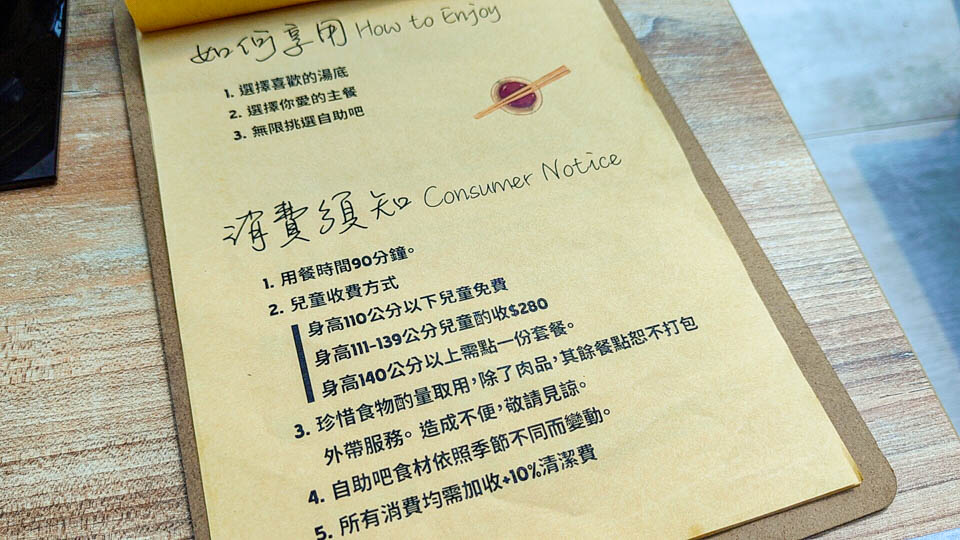 如何享用 How to Enjoy
1. 選擇喜歡的湯底
2. 選擇你愛的主餐
3. 無限挑選自助吧
消費須知 Consumer Notice
1. 用餐時間90分鐘。
2. 兒童收費方式
身高110公分以下兒童免費
身高111-139公分兒童酌收$280
身高140公分以上需點一份套餐。
3. 珍惜食物酌量取用，除了肉品，其餘餐點恕不打包
外帶服務。造成不便，敬請見諒。
4. 自助吧食材依照季節不同而變動。
5. 所有消費均需加收+10%清潔費